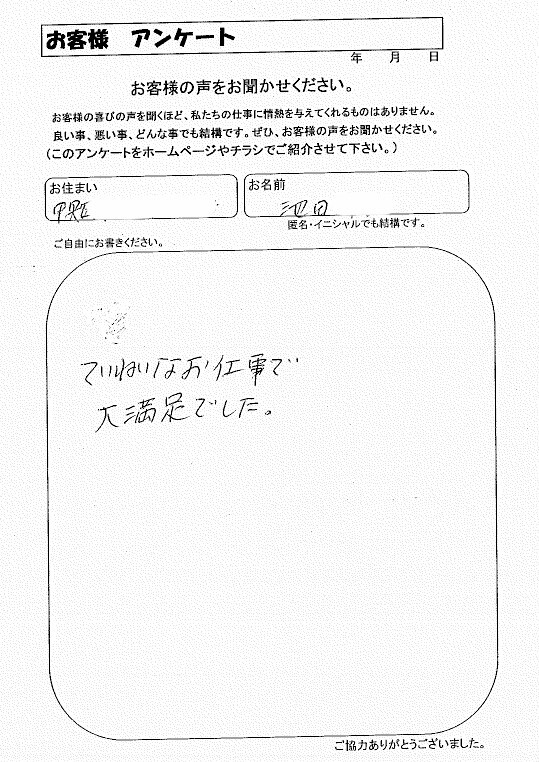 お客様 アンケート
年 月 日
お客様の声をお聞かせください。
お客様の喜びの声を聞くほど、私たちの仕事に情熱を与えてくれるものはありません。
良い事、悪い事、どんな事でも結構です。ぜひ、お客様の声をお聞かせください。
(このアンケートをホームページやチラシでご紹介させて下さい。)
お住まい
お名前
池田
匿名・イニシャルでも結構です。
ご自由にお書きください。
ていねいなお仕事で
大満足でした。
ご協力ありがとうございました。